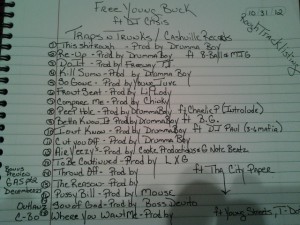 Free Young Buck
ft DJ Crisis
10/31/12
Rough Track Listing
Traps n Trunks / Cashville Records
① This shit rough - Prod by Drumma Boy
② Re-Up - Prod by Drumma Boy ft 8-Ball & MJG
③ Do It - Prod by Freeway TJ
④ Kill Sumo - Prod by Drumma Boy
⑤ So Gone - Prod by
⑥ Front Beat - Prod by Lil Lody
⑦ Compare Me - Prod by Chinky
⑧ Peep Hole - Prod by Drumma Boy ft Charlie P (Introlude)
⑨ Betta Know It - Prod by Drumma Boy ft B.G.
⑩ I Dont Know - Prod by Drumma Boy ft DJ Paul (3-6 mafia)
⑪ Cut You Off - Prod by Drumma Boy
⑫ Air Yeezy's - Prod by Coalz Productions & G Note Beatz
⑬ To Be Continued - Prod by LXG
⑭ Throwd Off - Prod by ft Tha City Paper
⑮ The Reason - Prod by
⑯ Pussy Bill - Prod by Mouse
Son of God - Prod by Boss Devito
Where You Want Me - Prod by ft Young Streets, T-Do
Bonus
Review
GA$ PER
December
Outlawz
C-Bo